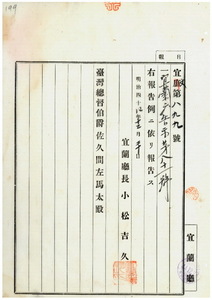 宜廳第八九九號
一宜蘭廳告示第八十號
右報告例ニ依リ報告ス
明治四十
宜蘭廳長 小松吉久
臺灣總督伯爵佐久間左馬太殿
宜蘭廳